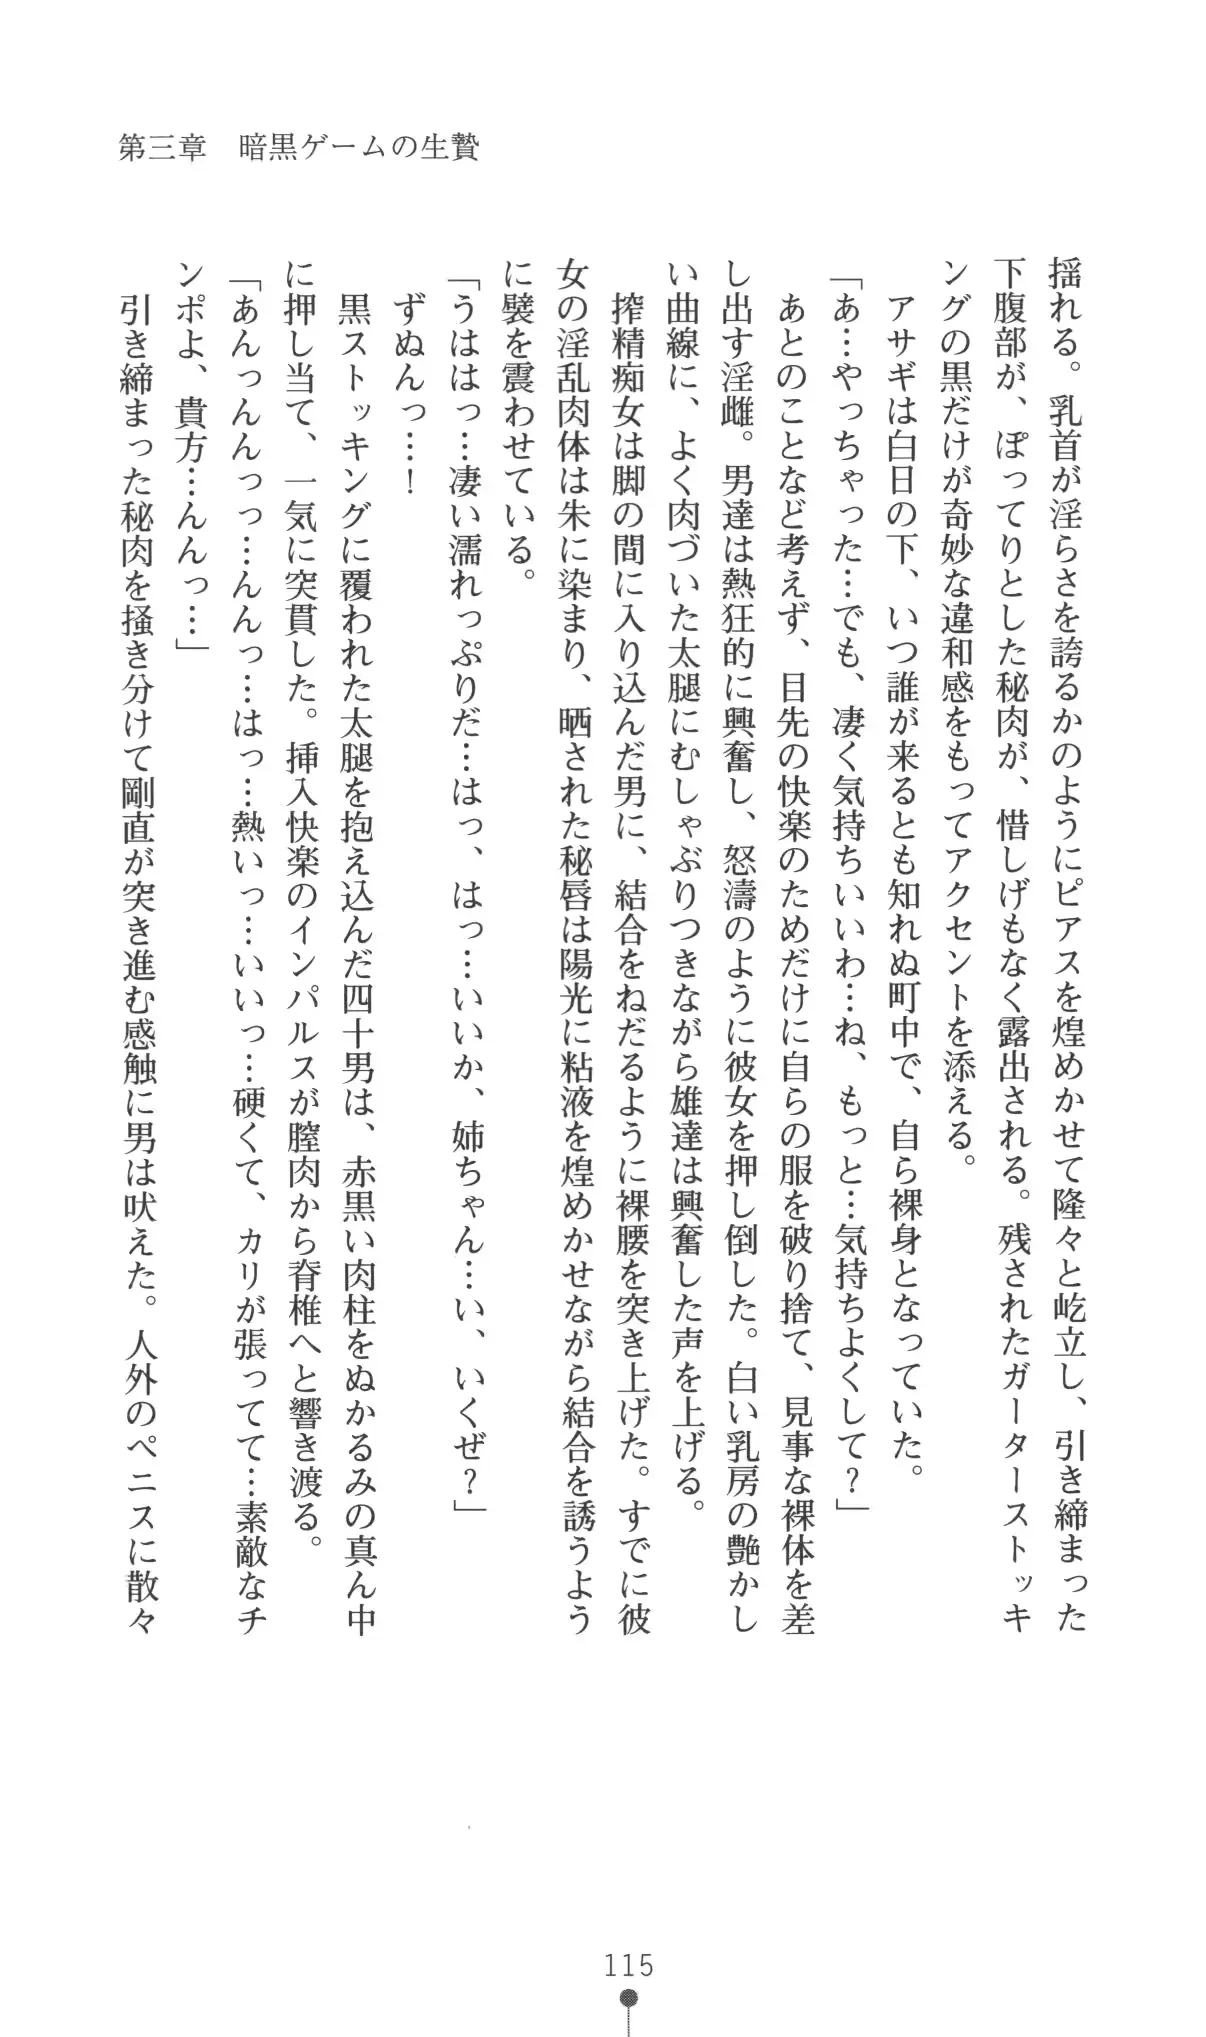 第三章　暗黒ゲームの生贄
揺れる。乳首が淫らさを誇るかのようにピアスを煌めかせて隆々と屹立し、引き締まった
下腹部が、ぽってりとした秘肉が、惜しげもなく露出される。残されたガーターストッキ
ングの黒だけが奇妙な違和感をもってアクセントを添える。
　アサギは白日の下、いつ誰が来るとも知れぬ町中で、自ら裸身となっていた。
「あ…やっちゃった…でも、凄く気持ちいいわ…ね、もっと…気持ちよくして？」
　あとのことなど考えず、目先の快楽のためだけに自らの服を破り捨て、見事な裸体を差
し出す淫雌。男達は熱狂的に興奮し、怒濤のように彼女を押し倒した。白い乳房の艶かし
い曲線に、よく肉づいた太腿にむしゃぶりつきながら雄達は興奮した声を上げる。
　搾精痴女は脚の間に入り込んだ男に、結合をねだるように裸腰を突き上げた。すでに彼
女の淫乱肉体は朱に染まり、晒された秘唇は陽光に粘液を煌めかせながら結合を誘うよう
に襞を震わせている。
「うははっ…凄い濡れっぷりだ…はっ、はっ…いいか、姉ちゃん…い、いくぜ？」
　ずぬんっ…！
　黒ストッキングに覆われた太腿を抱え込んだ四十男は、赤黒い肉柱をぬかるみの真ん中
に押し当て、一気に突貫した。挿入快楽のインパルスが膣肉から脊椎へと響き渡る。
「あんっんんっっ…んんっ…はっ…熱いっ…いいっ…硬くて、カリが張ってて…素敵なチ
ンポよ、貴方…んんっ…」
　引き締まった秘肉を掻き分けて剛直が突き進む感触に男は吠えた。人外のペニスに散々
115